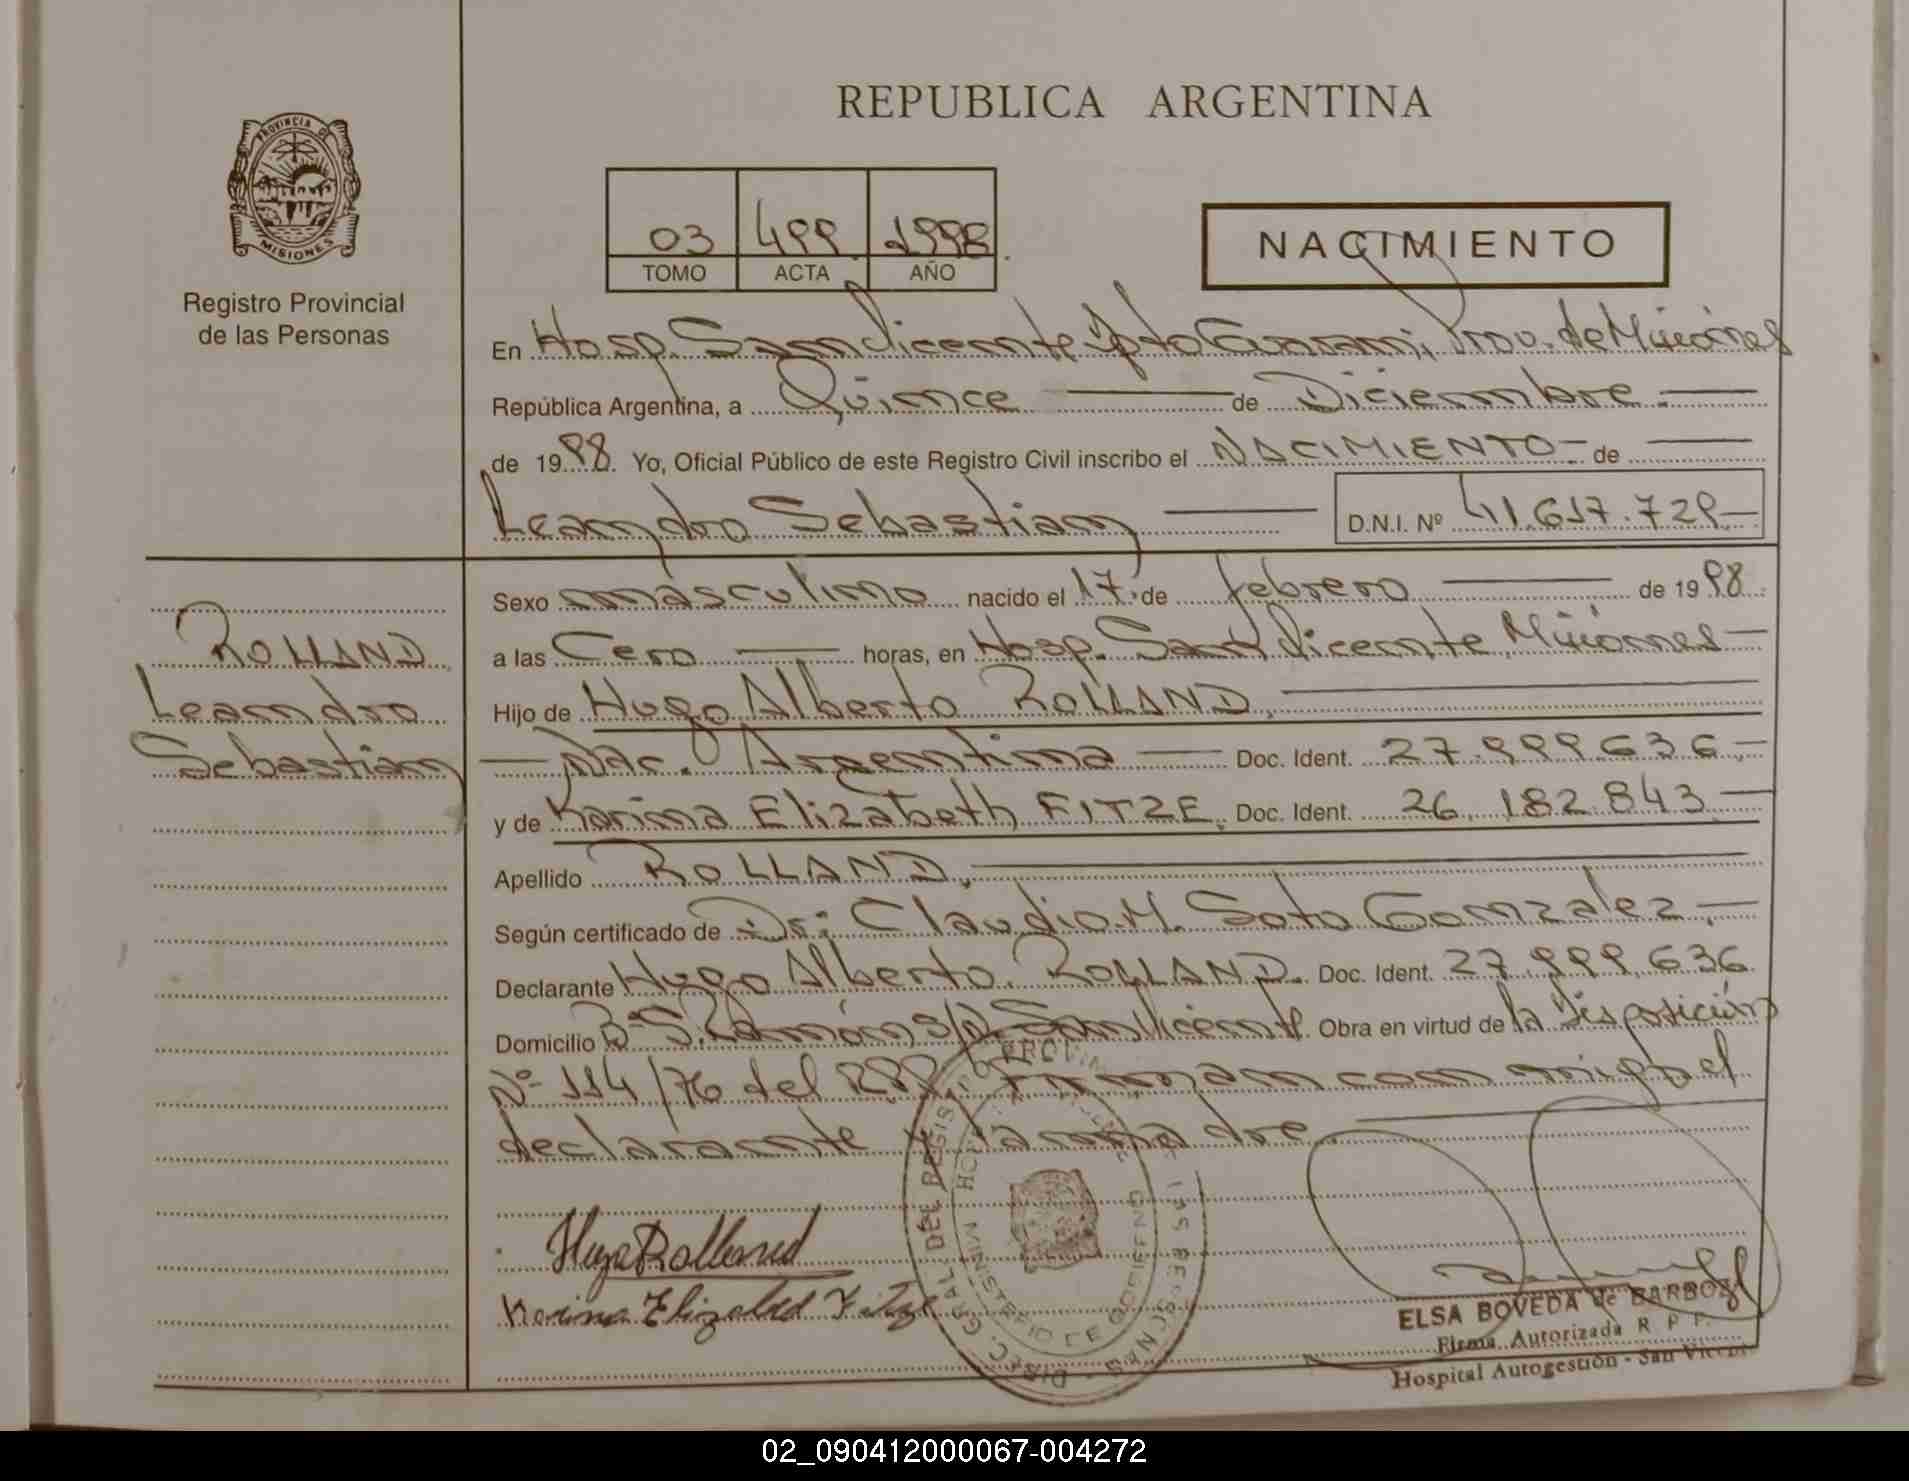 REPUBLICA ARGENTINA
PROVINCIA DE
MISIONES
Registro Provincial
de las Personas
03 499 1998
TOMO ACTA AÑO
NACIMIENTO
En Hosp. San Vicente Dpto Guaraní, Prov. de Misiones
República Argentina, a Quince de Diciembre.
de 1998. Yo, Oficial Público de este Registro Civil inscribo el NACIMIENTO de
Leandro Sebastian D.N.I. Nº 41.617.729
Sexo másculino nacido el 17 de febrero de 1998
a las Cero horas, en Hosp. San Vicente, Misiones
Hijo de Hugo Alberto ROLLAND,
Nac. Argentina Doc. Ident. 27.999.636
y de Karina Elizabeth FITZE, Doc. Ident. 26.182.843
Apellido ROLLAND,
Según certificado de Dr: Claudio M. Soto Gonzalez,
Declarante Hugo Alberto ROLLAND. Doc. Ident. 27.999.636
Domicilio Bº S. Ramón s/n San Vicente. Obra en virtud de la disposición
Nº 114/76 del RPP. Firman conmigo el
declarante y la madre
ROLLAND
Leandro
Sebastián
Hugo Rolland
Karina Elizabeth Fitze
ELSA BOVEDA de BARBOZA
Firma Autorizada R. P. P.
Hospital Autogestión - San Vicente
02_090412000067-004272